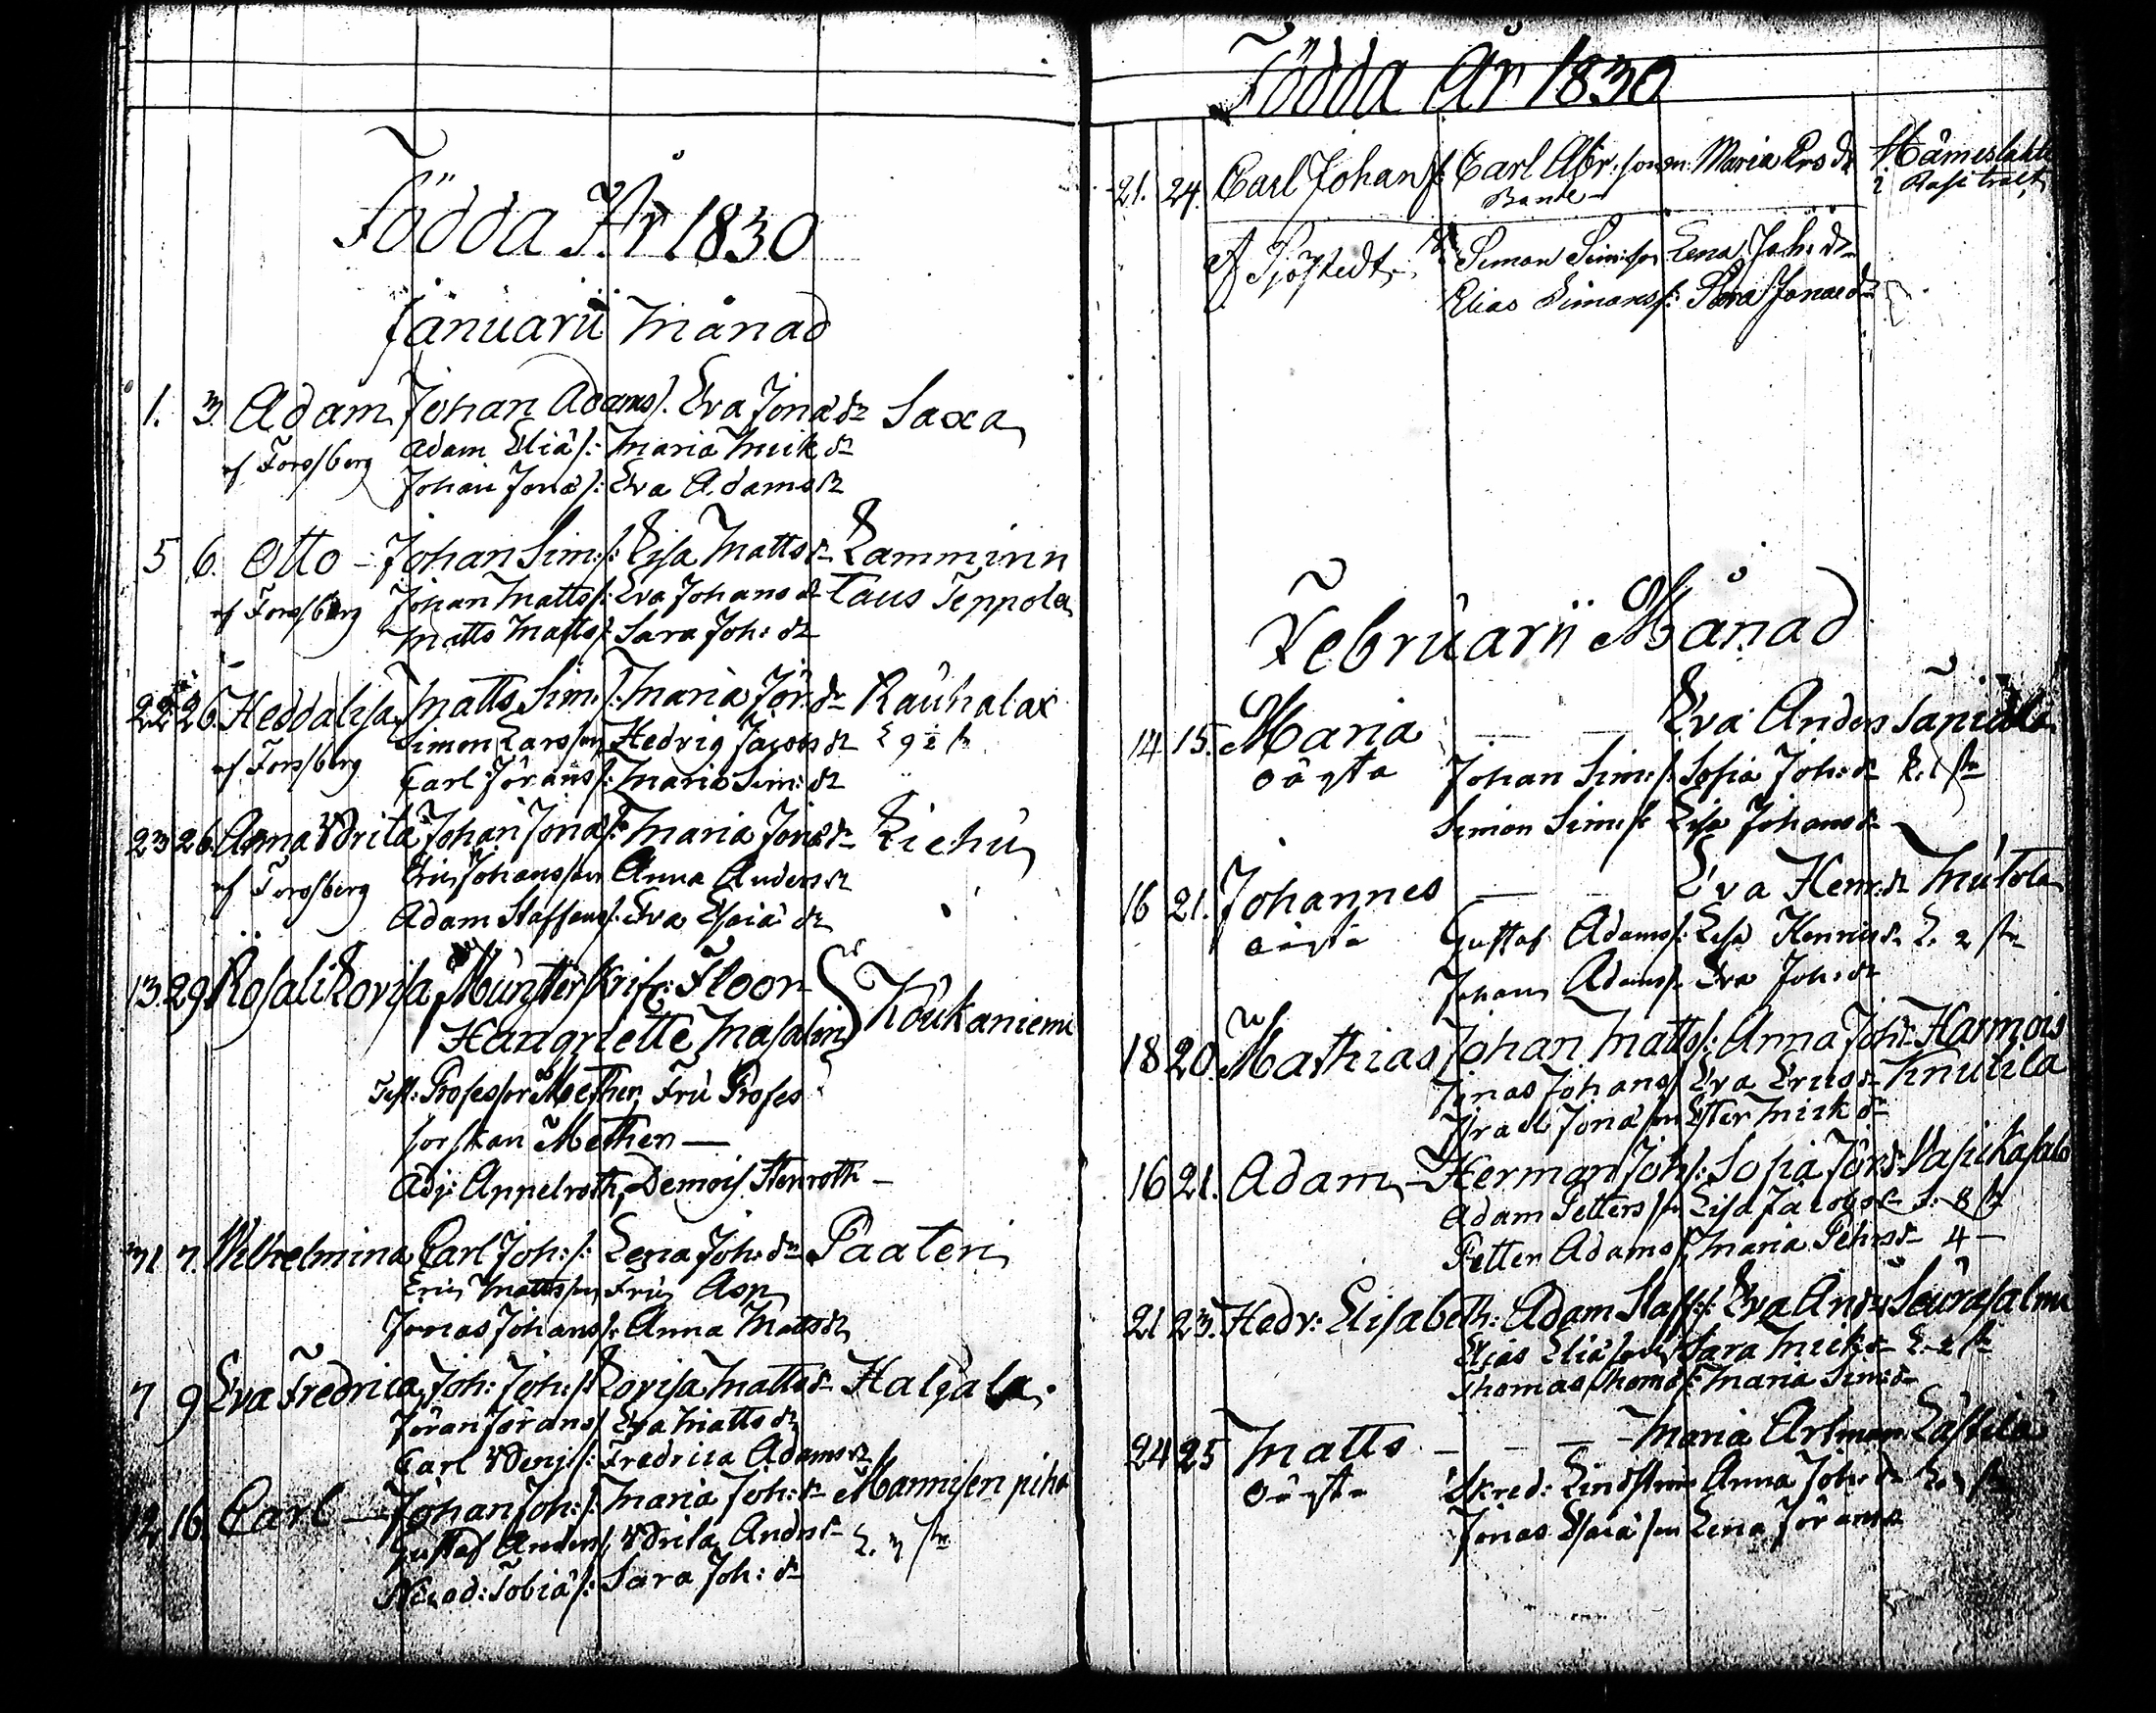 Födda År 1830
Januarii Månad
1. 3. Adam Johan Adams/: Eva Jona dr Saxa
af Forssberg Adam Elia/: Maria Mick dr
Johan Jona/: Eva Adams dr
5 6. Otto - Johan Sim:/: Lisa Matts dr Lamminn
af Forssberg Johan Matts/: Eva Johans dr Taus Teppola
Matts Matts/: Sara Joh: dr
22 26. Hedda Lisa Matts Sim:/: Maria Jör: dr Rauhalax
af Forssberg Simon Larsson Hedvig Jacobs dr
Carl Jörans/: Maria Sim: dr
23 26. Anna Udrika Johan Jona/: Maria Jona dr
af Forssberg Eric Johansson Anna Anders dr
Adam Staffans/: Eva Esaia dr
13. 29 Rosali Lovisa Münsterskrif: Floor
Masalin Koukaniemi
Test: Professor Methen, Fru Profes
sorskan Methen —
Adj: Appelroth, Demois Stenroth -
31 7. Wilhelmina Carl Joh:/: Lena Joh: dr Paateri
Eric Mattsson Fru Asp
Jonas Johans/: Anna Matts dr
7 9 Eva Fredrica Joh: Joh:/: Lovisa Matts dr Halgala
Jöran Jörans/ Eva Matts dr
Carl Benj:/: Fredrica Adams dr
12 16. Carl — Johan Joh:/: Maria Joh: dr Mannisen piha
Gustaf Anders/: Udrika Anders dr
Tobia/: Sara Joh: dr
Födda År 1830
21. 24. Carl Johan Carl Abr: sonen: Maria Ers dr
Bonde
af Sjöstedt Simon Sim:son Lena Joh: dr
Elias Simons/: Jonae dr
Februarii Månad
14 15. Maria — — Eva Anders
oägta Johan Sim:/: Sofia Joh: dr
Simon Sim:/: Lisa Johans dr
16 21. Johannes — — Eva Henr: dr Mutola
oägta Gustaf Adams/: Lisa Henrics dr
Johan Adams/: Eva Joh: dr
18 20. Mathias Johan Matts/: Anna Joh: dr Harmois
Jonas Johans/ Eva Erics dr Knutila
Israel Jonason Ester Mick dr
16 21. Adam — Herman Joh/: Sofia Jör: dr Vasickasalo
Adam Petters son Lisa Jacobs dr
Petter Adams/: Maria Pehrs dr 4 —
21 23. Hedv: Elisabeth: Adam Staff:/: Eva And: dr Seurasalmi
Elias Eliasson Sara Mick dr
Thomas Thoms/: Maria Sim: dr
24 25 Matts — — — Maria Artman Lastila
oägta Skred: Lindström Anna Joh: dr
Jonas Esaiason Lena Jörans dr